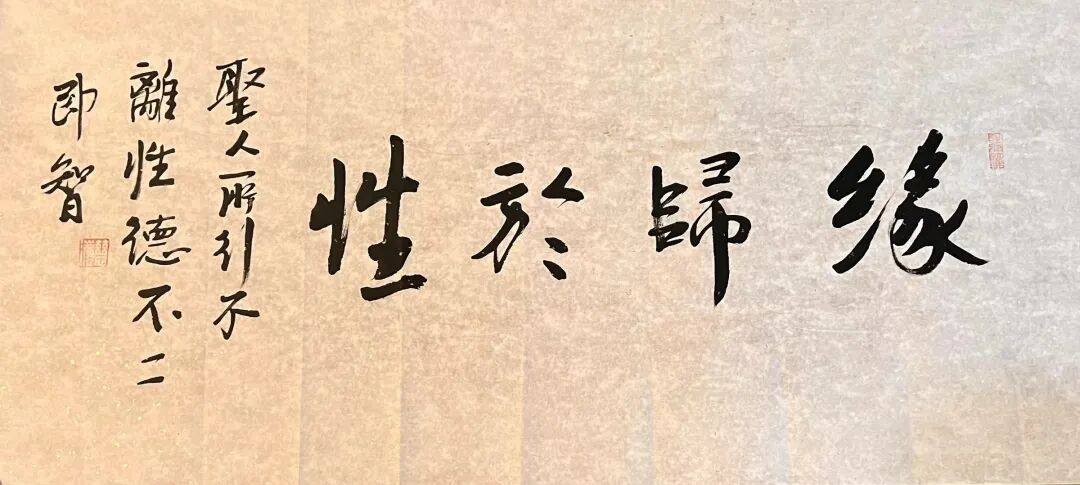 緣歸於性
聖人所行不
離性德不二
即智